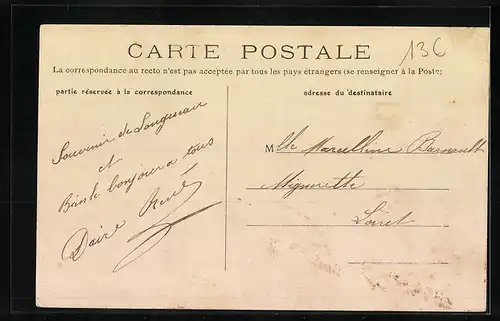 CARTE POSTALE
13C
La correspondance au recto n'est pas acceptée par tous les pays étrangers (se renseigner à la Poste)
partie réservée à la correspondance
adresse du destinataire
Souvenir de
et
bonjour a tous
Daire René
Mlle Marcelline
Mignerette
Loiret